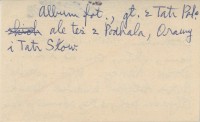 Album fot., gł. z Tatr Pol-
skich ale też z Podhala, Orawy
i Tatr Słow.